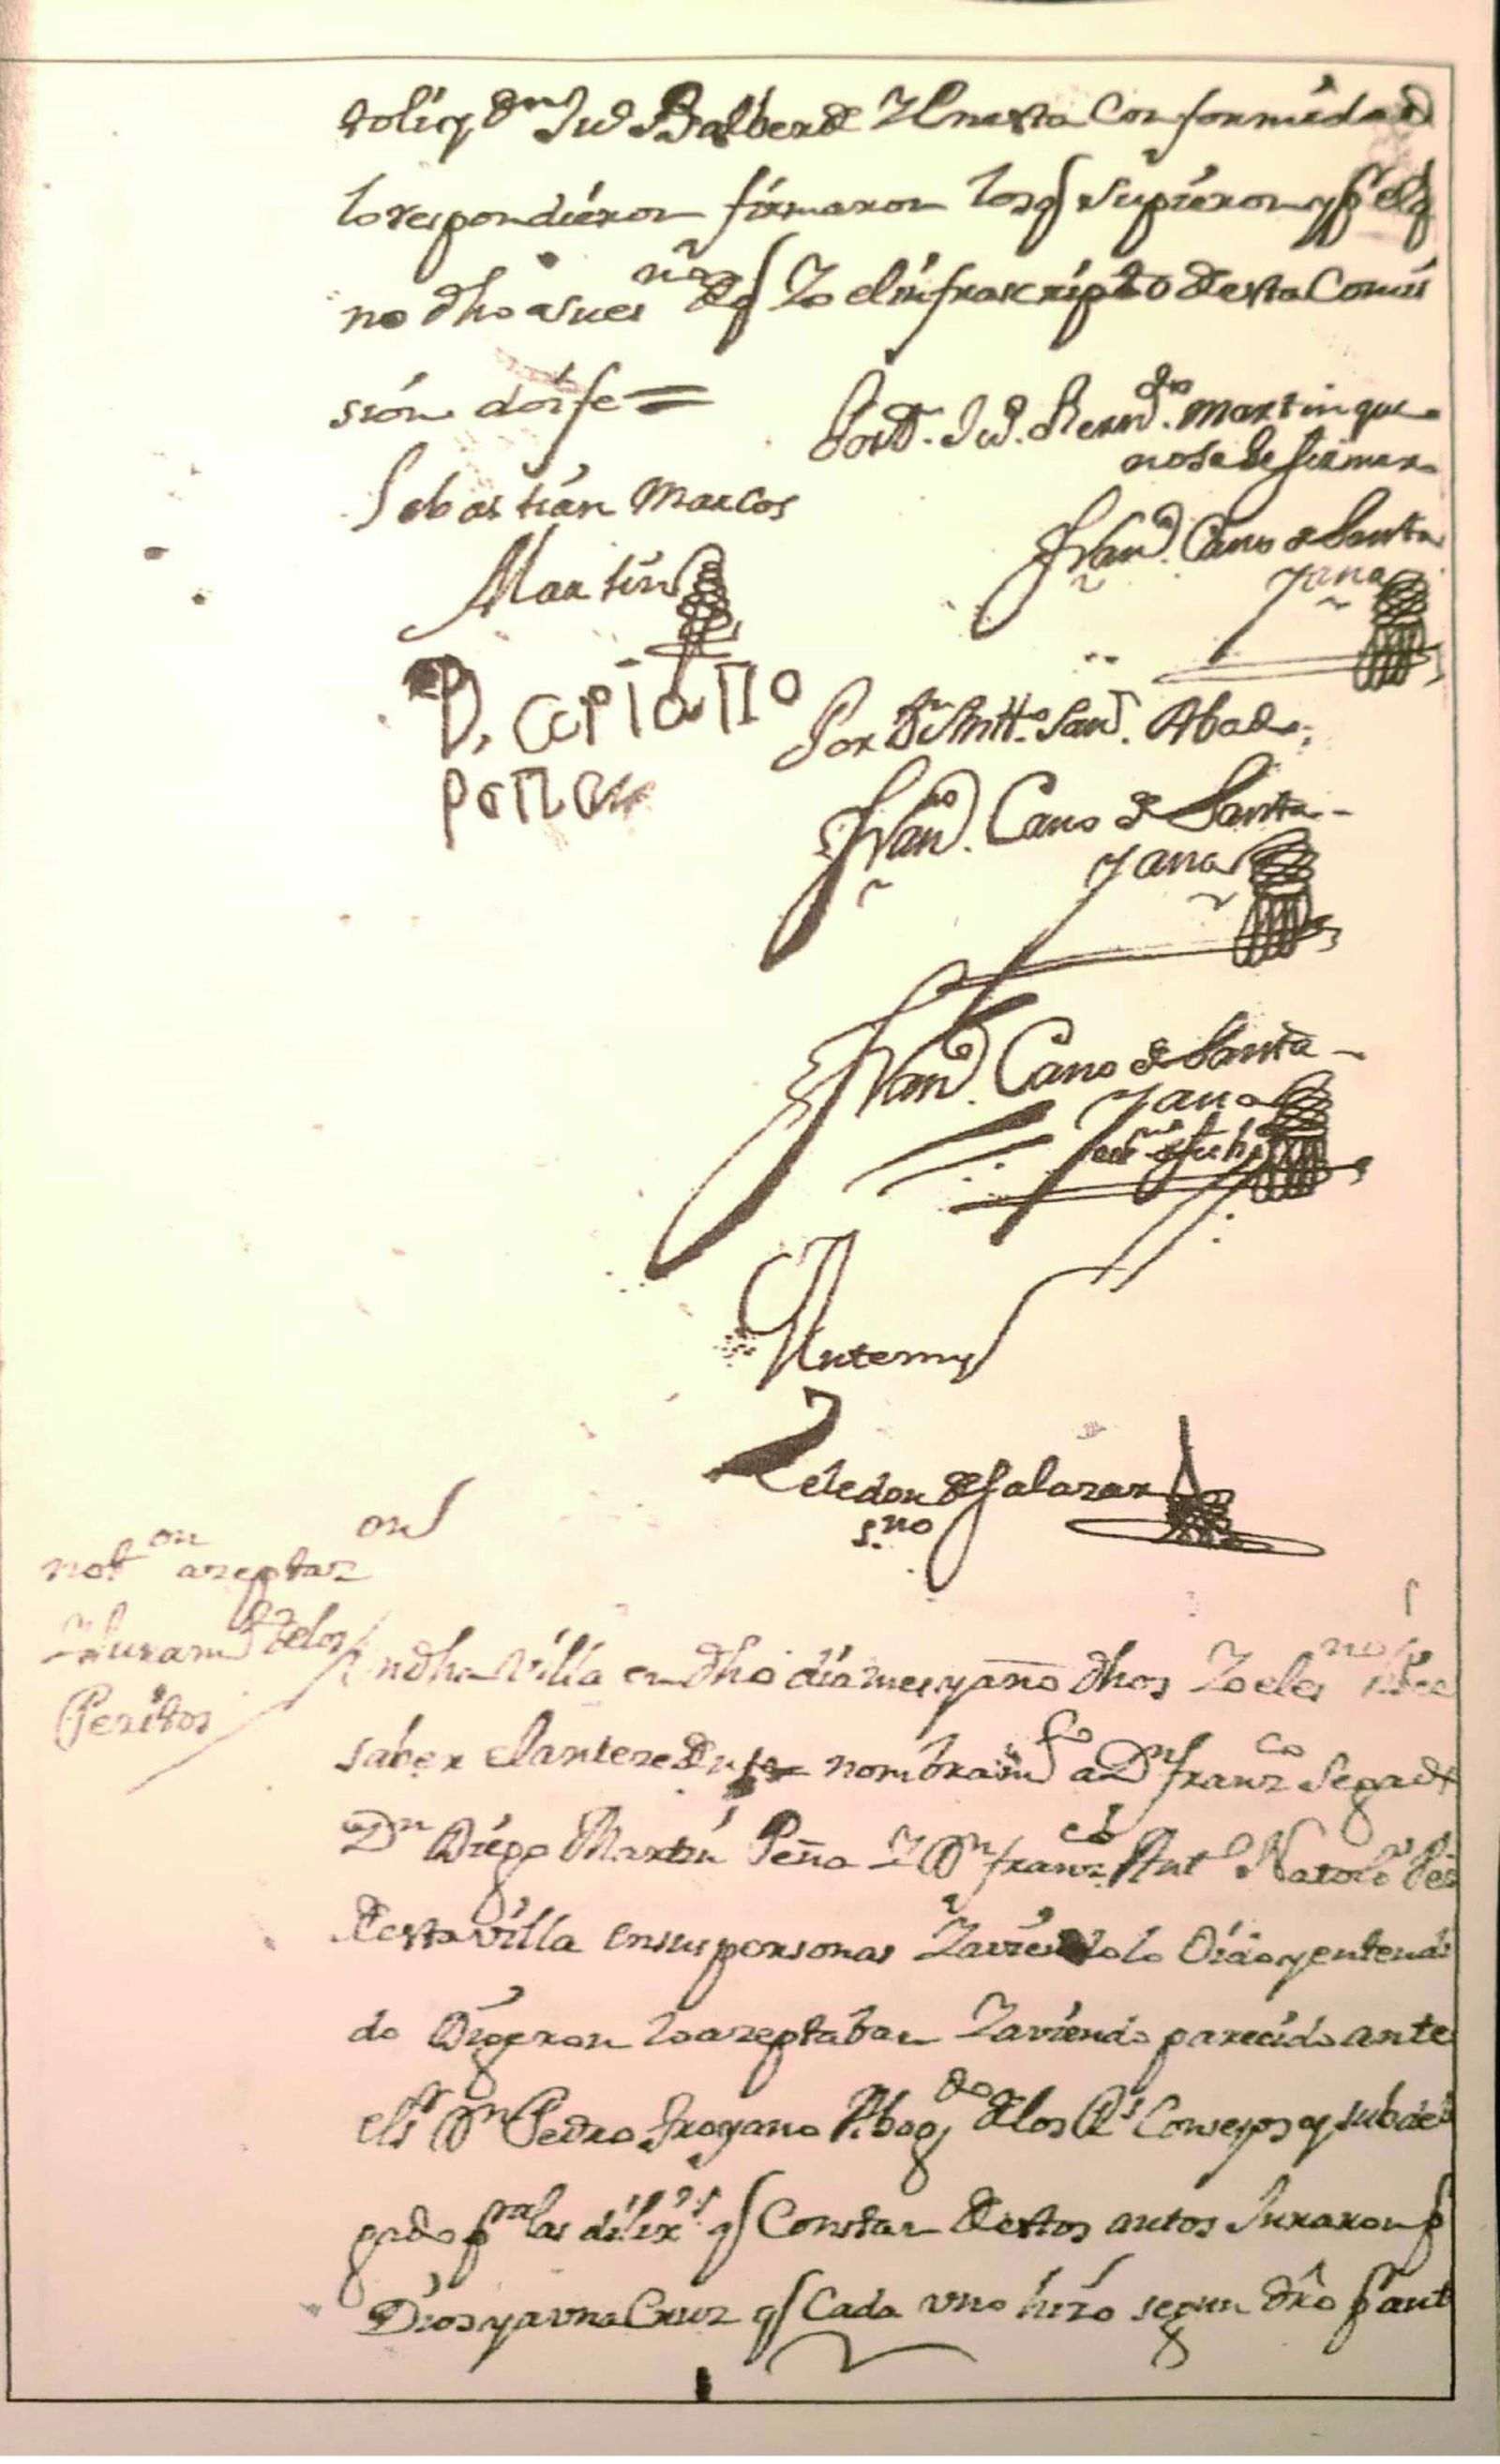 toli y Dn Ju Balberde Y en esta Conformidad
lo respondieron firmaron los q supieron y p el q
no dho a sues mds de q Yo el infrascripto desta Comi
sion doi fe =
Por D. Ju. Bernd.do Martin que
no sabe firmar
Sebastian Marcos
Martin
Fran.co Cano de Santa
Yana
D. Cciallo
Por Dn Antt.o San. Abad.
Fran.co Cano de Santa
Yana
Fran.co Cano de Santa
Yana
Antemy
Zeledon de Salazar
s.no
not on azeptaz on
Y Juram to de los
Peritos
En dha Villa en dho dia mes y año dhos Yo el es no hice
saber el antezedente nombram to a Dn Franz co Segad
Dn Diego Martin Peña Y Dn Franz co Ant Natoli
desta villa en sus personas Y aviendolo Oido y entendi
do Digeron lo azeptaban Y aviendo parecido ante
el Sr Dn Pedro Froyano Abog do de los Rs Consejos y subdele
gado p ra las dilix s q Constan destos autos Juraron p
Dios y a una Cruz q Cada uno hizo segun dro p ant